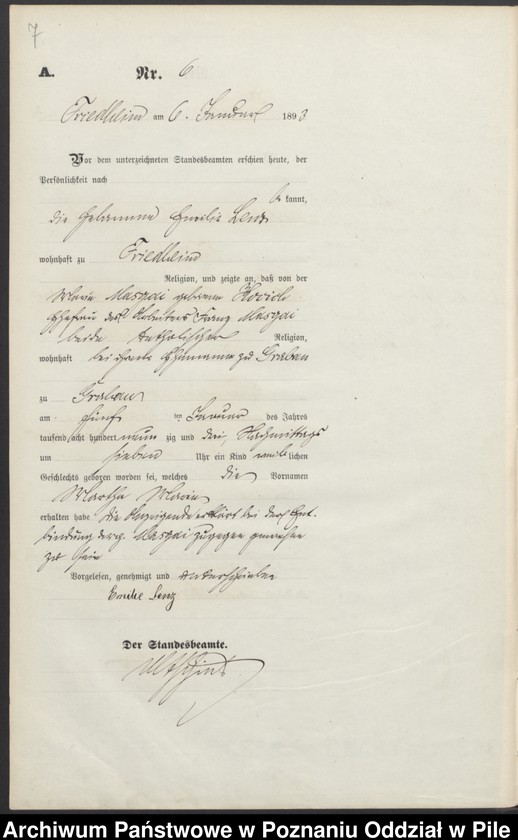 7
A. Nr. 6
Friedheim am 6. Januar 1893
Vor dem unterzeichneten Standesbeamten erschien heute, der
Persönlichkeit nach
be kannt,
die Hebamme Emilie Lenz
wohnhaft zu Friedheim
Religion, und zeigte an, daß von der
Marie geborene
Ehefrau des Arbeiters Franz
beide katholischer Religion,
wohnhaft bei ihrem Ehemanne zu Grabau
zu Grabau
am fünf ten Januar des Jahres
tausend acht hundert neun zig und drei Nachmittags
um sieben Uhr ein Kind weib lichen
Geschlechts geboren worden sei, welches die Vornamen
Martha Marie
erhalten habe die Anzeigende erklärt bei der Ent-
bindung der zugegen gewesen
zu sein
Vorgelesen, genehmigt und unterschrieben
Emilie Lenz
Der Standesbeamte.
Archiwum Państwowe w Poznaniu Oddział w Pile